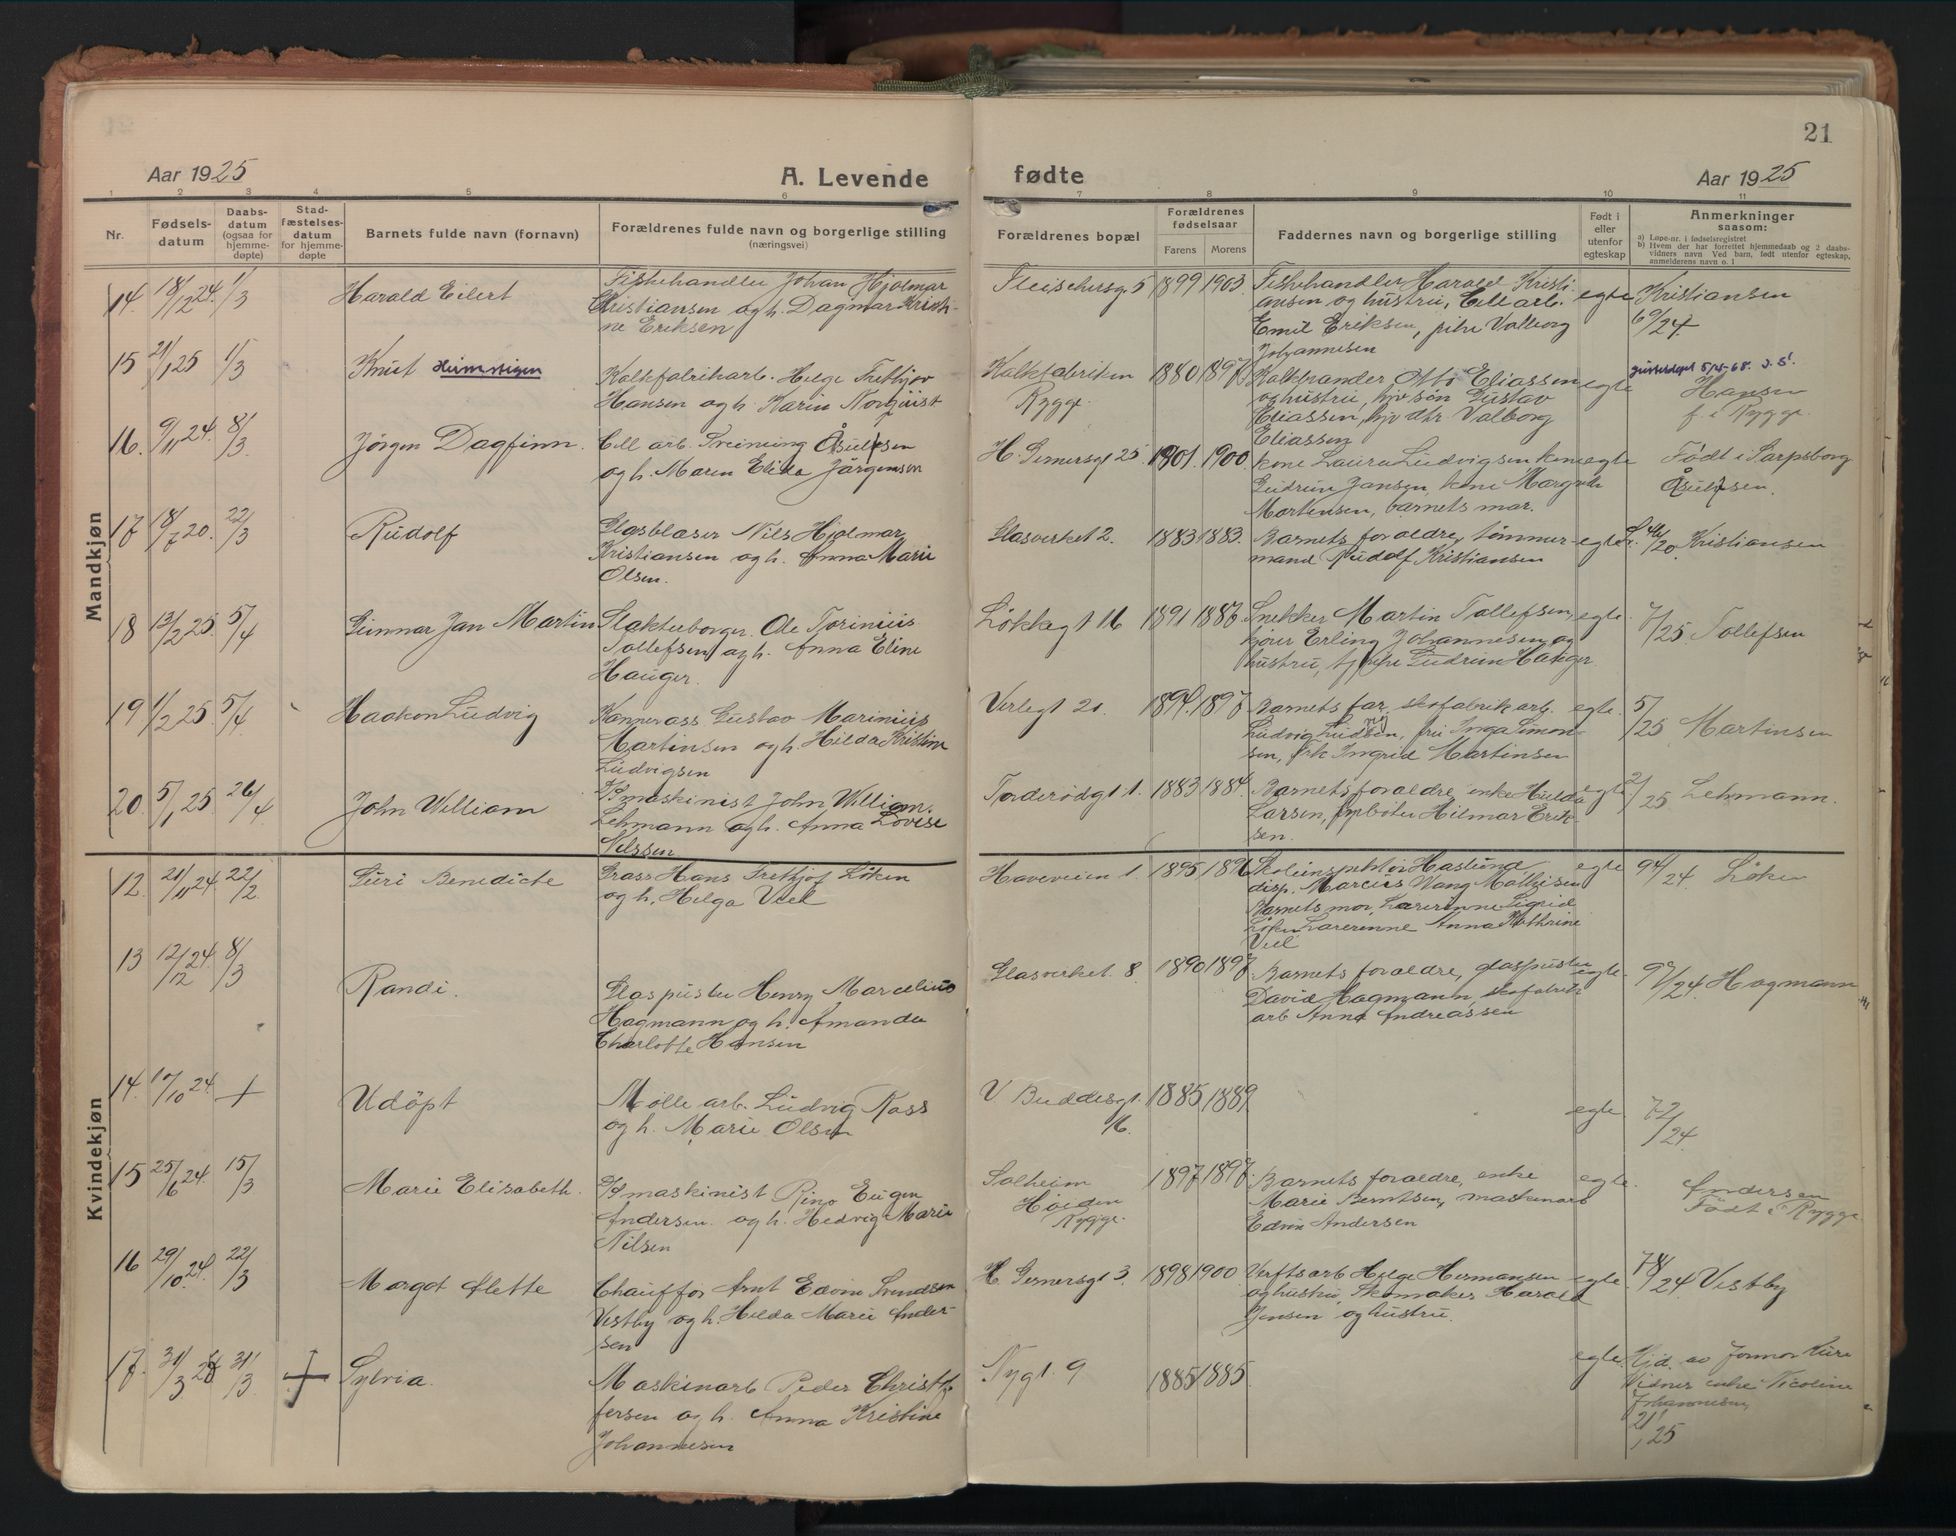 21
Aar 1925
A. Levende
fødte
Aar 1925
1 2 3 4 5 6 7 8 9 10 11
Nr.
Fødsels-
datum
Daabs-
datum
(ogsaa for
hjemme-
døpte)
Stad-
fæstelses-
datum
for hjemme-
døpte
Barnets fulde navn (fornavn)
Forældrenes fulde navn og borgerlige stilling
(næringsvei)
Forældrenes bopæl
Forældrenes
fødselsaar
Farens Morens
Faddernes navn og borgerlige stilling
Født i
eller
utenfor
egteskap
Anmerkninger
saasom:
a) Løpe-nr. i fødselsregistret
b) Hvem der har forrettet hjemmedaab og 2 daabs-
vidners navn Ved barn, født utenfor egteskap,
anmelderens navn o. l
Mandkjøn
14. 18/12 24. 1/3 Harald Eilert
Fiskehandler Johan Hjalmar
Kristiansen og h. Dagmar Kristi-
ne Eriksen
Fleischersg. 5 1899 1903
Fiskehandler Harald Kristi-
ansen og hustru, Cell arb.
Emil Eriksen, pike Valborg
Johannesen
egte
Kristiansen
69/24
15 21/1 25 1/3 Knut Heimstigen
Kalkfabrikarb. Helge Frithjov
Hansen og h. Karin Norquist
Kalkfabriken
Rygge
1880 1897
Kalkbrander Otto Eliassen
og hustru, hjv søn Gustav
Eliassen, hjv dtr. Valborg
Eliassen
egte
Hansen
f. i Rygge
16. 9/11 24. 8/3 Jörgen Dagfinn.
Cell arb. Treining Åsulfsen
og h. Maren Elida Jörgensen
H. Gernersgt 25 1901. 1900
kone Laura Ludvigsen kone
Gudrun Jansen, kone Margrete
Mortensen, barnets mor.
egte
Født i Sarpsborg
Åsulfsen.
17 18/7 20. 22/3 Rudolf
Glasblæser Nils Hjalmar
Kristiansen og h. Anna Marie
Olsen.
Glasverket 2. 1883 1883.
Barnets foraldre, tømmer-
mand Rudolf Kristiansen
egte
Kristiansen
18 13/2 25. 5/4 Gunnar Jan Martin
Slakterborger. Ole Torinius
Tollefsen og h. Anna Eline
Hauger.
Løkkegt 16 1891 1886
Snekker Martin Tollefsen,
kjører Erling Johannesen og
hustru, tj pike Gudrun Hauger.
egte.
7/25 Tollefsen
19 1/2 25. 5/4 Haakon Ludvig
Kannerass Gustav Marinius
Martinsen og h. Hilda Kristine
Ludvigsen
Verlegt 21. 1894. 1897
Barnets far, skofabrikarb.
Ludvig Ludvigsen, fru Inga Simon-
sen, frk Ingrid Martinsen
egte.
5/25 Martinsen
20. 5/1 25. 26/4 John William
maskinist John William
Lehmann og h. Anna Lovise
Nilssen
Torderødgt 1. 1883 1884.
Barnets foraldre, enke Hulda
Larsen, Hilmar Erik-
sen.
egte
2/25 Lehmann.
Kvindekjøn
12. 21/11 24 22/2 Guri Benedicte
Grass Hans Frithjof Løken
og h. Helga Viel
Haveveien 1. 1895 1896
Skoleinspektør Haslund
disp. Marcus Wang Mathisen
Barnets mor, Lærerinne Sigrid
Løken Lærerinne Anna Kathrine
Viel
egte
94/24. Løken
13 12/12 24. 8/3 Randi.
Glaspuster Henry Marcelius
Hagmann og h. Amanda
Charlotte Hansen
Glasverket. 8 1890 1897.
Barnets foraldre, glaspuster
David Hagmann, skofabrik
arb Anna Andreassen
egte.
97/24. Hagmann
14. 17/10 24. + Udöpt
Mølle arb. Ludvig Rass
og h. Marie Olsen
V. Buddesgt. 1885 1889
16.
egte.
72/24
15 25/6 24. 15/3 Marie Elisabeth.
maskinist Rino Eugen
Andersen. og h. Hedvig Marie
Nilsen
Solheim
Høiden
Rygge.
1897 1897.
Barnets foraldre, enke
Marie Berntsen, maskinarb
Edvin Andersen
egte.
Andersen
Födt i Rygge.
16 29/10 24. 22/3 Margot Alette
Chauffør Arnt Edvin Svendsen
Vestby og h. Hilda Marie Ander-
sen
H. Gernersgt 3. 1898 1900
Verftsarb Helge Hermansen
og hustru, Skomaker Harald
Jensen og hustru.
egte
78/24 Vestby
17. 31/3 31/3 + Sylvia.
Maskinarb Peder Christof-
fersen og h. Anna Kristine
Johannesen
Nygt. 9 1885 1885
egte.
Hjd. av Jormor
Vidner enke Nicoline
Johannesen,
21/25